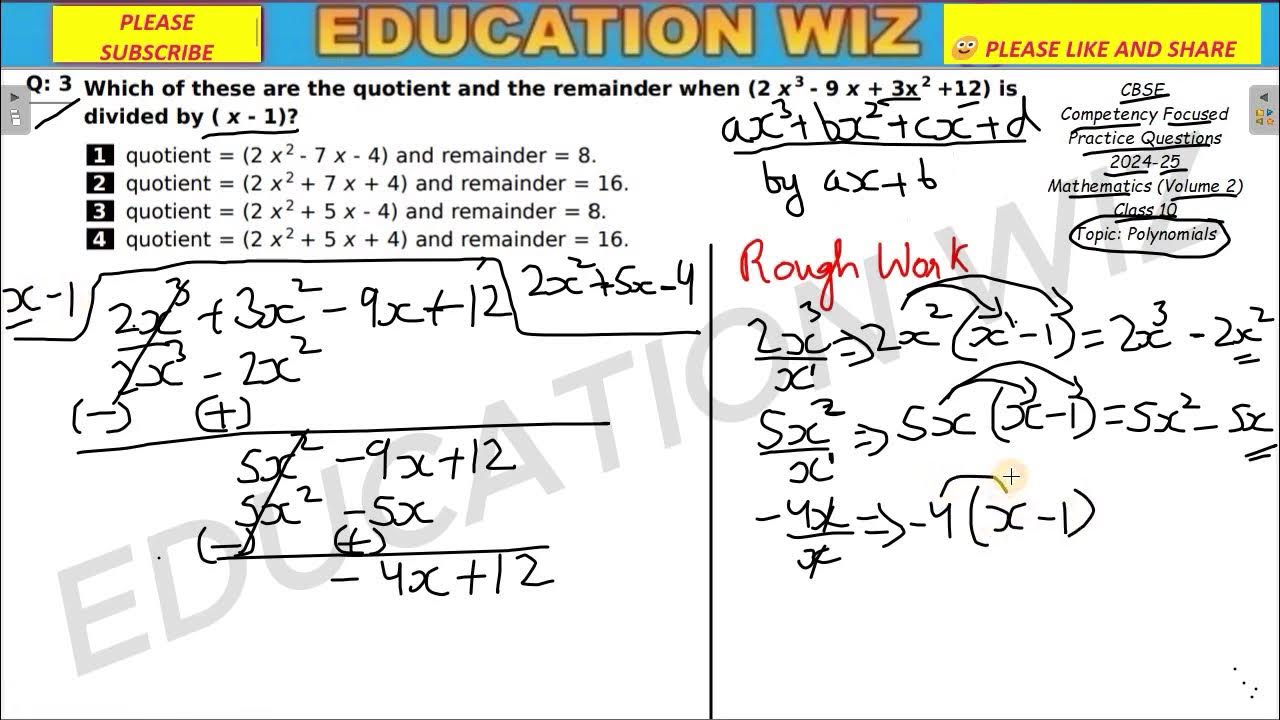 PLEASE
SUBSCRIBE
EDUCATION WIZ
PLEASE LIKE AND SHARE
Q: 3 Which of these are the quotient and the remainder when (2 x³ - 9 x + 3x² +12) is
divided by ( x - 1)?
1 quotient = (2 x² - 7 x - 4) and remainder = 8.
2 quotient = (2 x² + 7 x + 4) and remainder = 16.
3 quotient = (2 x² + 5 x - 4) and remainder = 8.
4 quotient = (2 x² + 5 x + 4) and remainder = 16.
ax³+bx²+cx+d
by ax+b
CBSE
Competency Focused
Practice Questions
2024-25
Mathematics (Volume 2)
Class 10
Topic: Polynomials
x-1 2x³ + 3x² - 9x + 12 2x²+5x-4
2x³ - 2x²
(-) (+)
5x² - 9x + 12
5x² - 5x
(-) (+)
- 4x + 12
Rough Work
2x³/x¹ ⇒ 2x² (x¹ - 1) = 2x³ - 2x²
5x²/x¹ ⇒ 5x (x - 1) = 5x² - 5x
-4x/x ⇒ -4 (x - 1)
EDUCATION WIZ